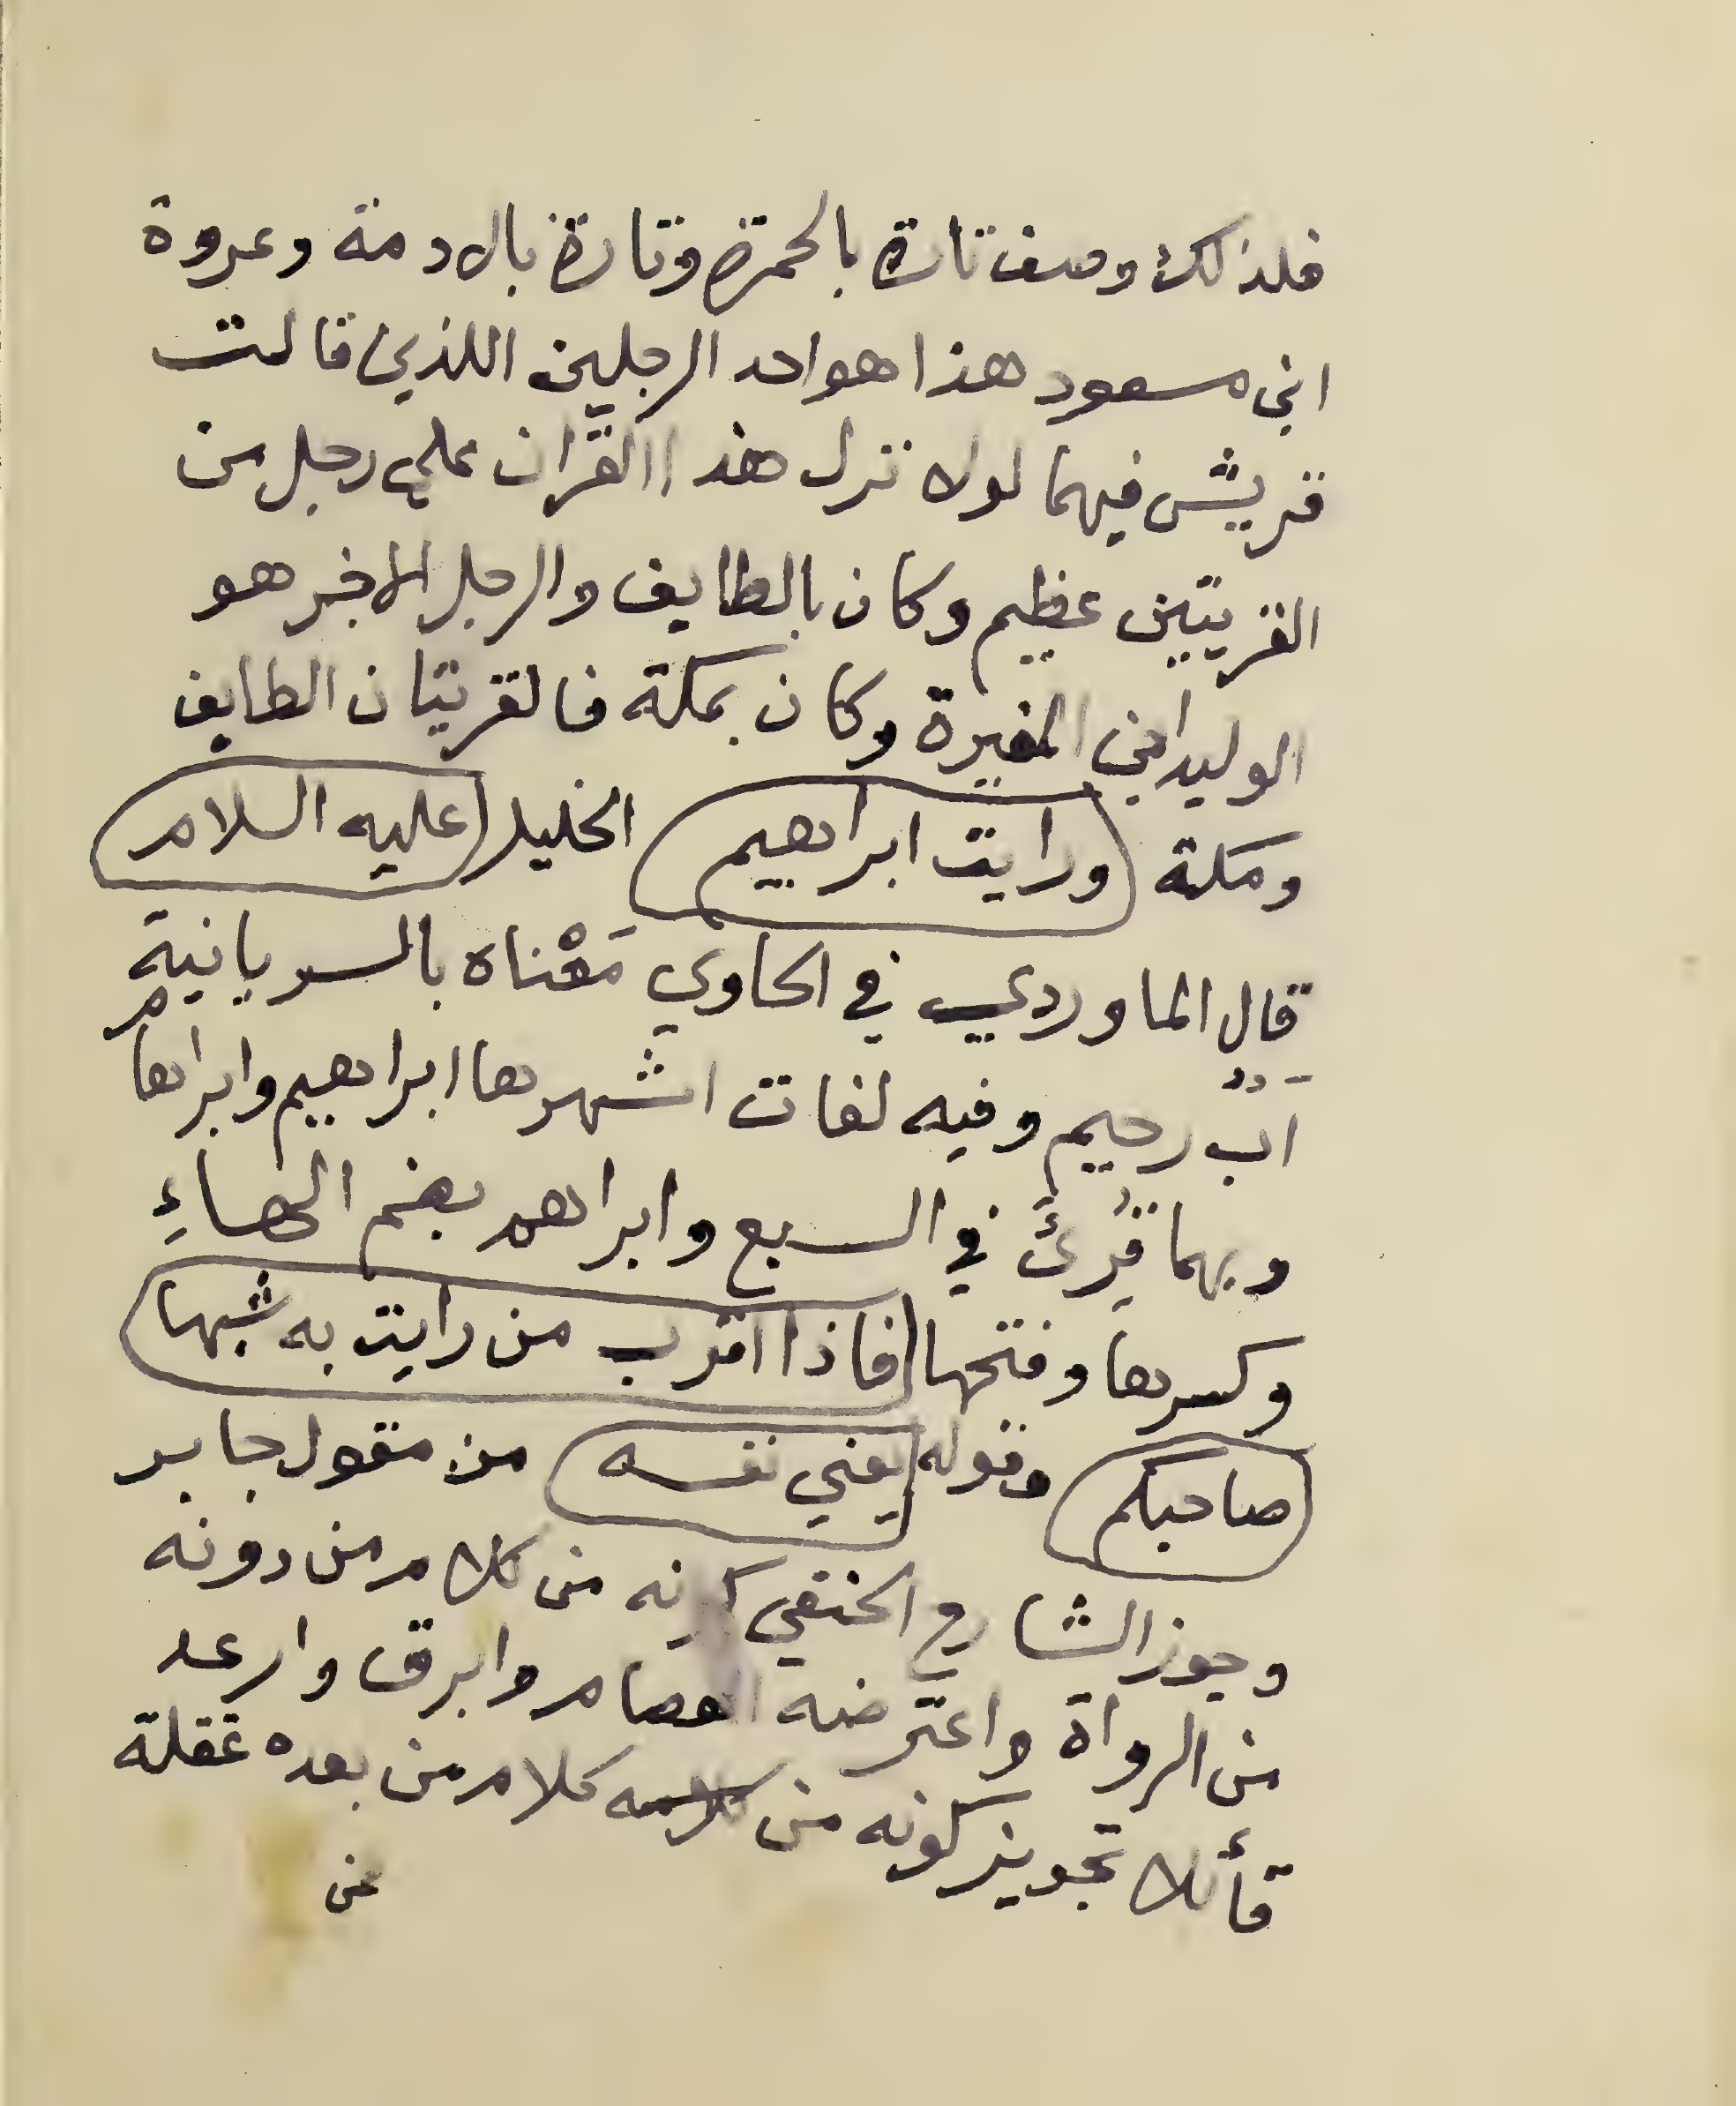 فلذلك وصف تارة بالحمرة وتارة بالادمة وعروة
ابن مسعود هذا هو احد الرجلين اللذين قالت
قريش فيهما لولا نزل هذا القرآن على رجل من
القريتين عظيم وكان بالطايف والرجل الاخر هو
الوليد ابن المغيرة وكان بمكة فالقريتان الطايف
ومكة ورايت ابراهيم الخليل عليه السلام
قال الماوردي في الحاوي مَعْناه بالسريانية
ابٌ رحيم وفيه لغات اشهرها ابراهيم وابراهام
وبهما قُرِئَ في السبع وابراهم بضم الهاءِ
وكسرها وفتحها فاذا اقرب من رايت به شبها
صاحبكم وقوله يعني نفسه من مقول جابر
وجوز الشارح الحنفي كونه من كلام من دونه
من الرواة واعترضه العصام وابرق وارعد
قائلا تجويز كونه من كلامه كلام من بعده غفلة
عن